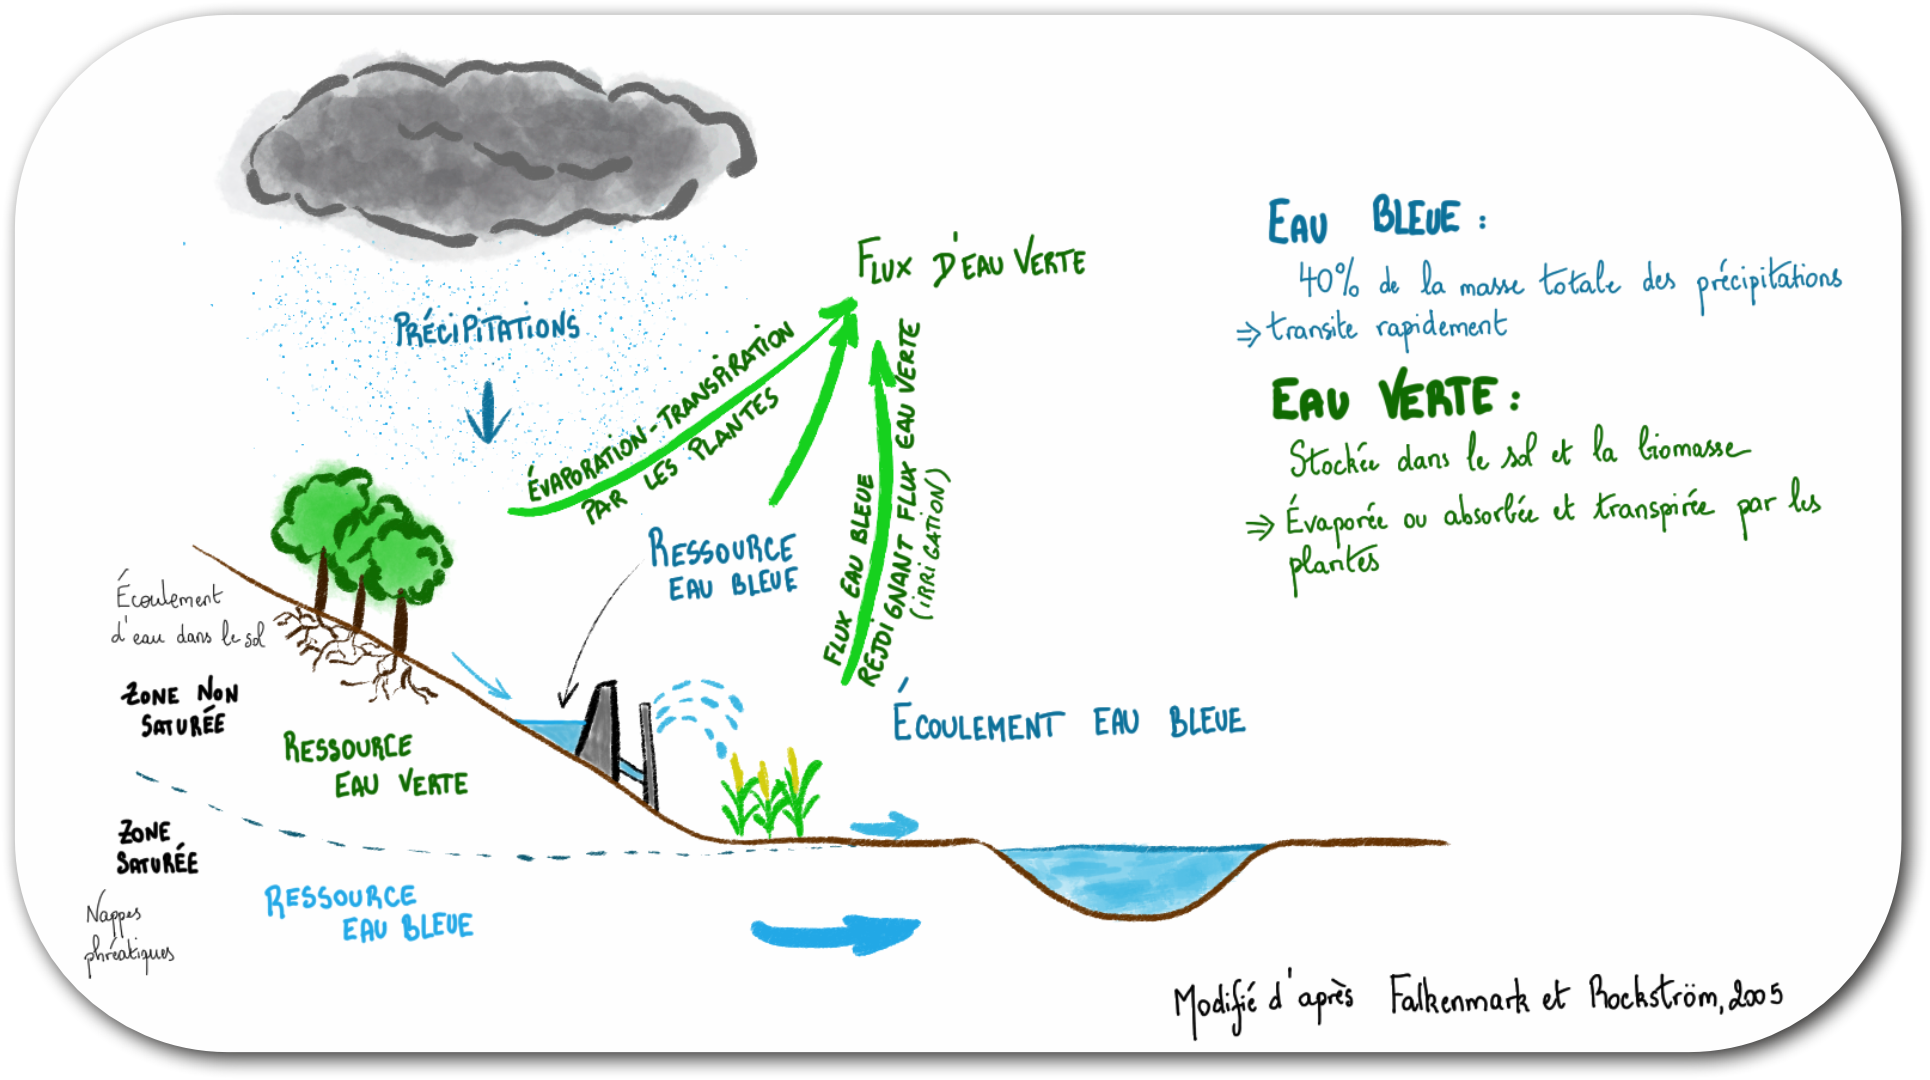 PRÉCIPITATIONS
FLUX D'EAU VERTE
ÉVAPORATION-TRANSPIRATION
PAR LES PLANTES
RESSOURCE
EAU BLEUE
FLUX EAU BLEUE
REJOIGNANT FLUX EAU VERTE
(IRRIGATION)
Écoulement
d'eau dans le sol
ZONE NON
SATURÉE
RESSOURCE
EAU VERTE
ÉCOULEMENT EAU BLEUE
ZONE
SATURÉE
Nappes
phréatiques
RESSOURCE
EAU BLEUE
EAU BLEUE :
40% de la masse totale des précipitations
⇒ transite rapidement
EAU VERTE :
Stockée dans le sol et la biomasse
⇒ Évaporée ou absorbée et transpirée par les
plantes
Modifié d'après Falkenmark et Rockström, 2005